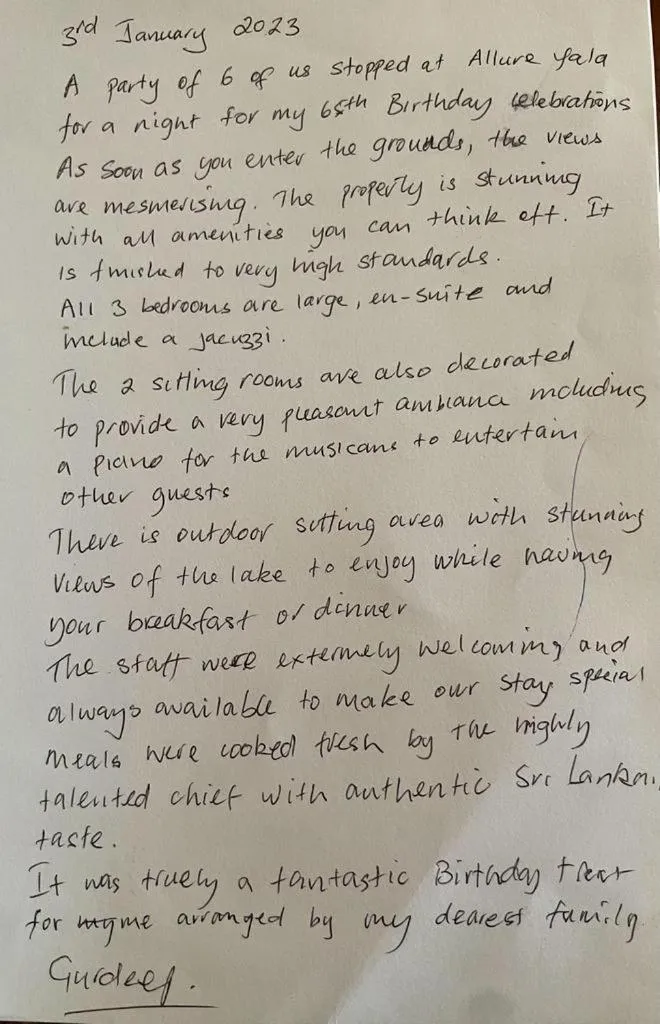 3rd January 2023
A party of 6 of us stopped at Allure Yala
for a night for my 65th Birthday celebrations
As soon as you enter the grounds, the views
are mesmerising. The property is stunning
with all amenities you can think off. It
is finished to very high standards.
All 3 bedrooms are large, en-suite and
include a jacuzzi.
The 2 sitting rooms are also decorated
to provide a very pleasant ambiance including
a piano for the musicans to entertain
other guests
There is outdoor sitting area with stunning
views of the lake to enjoy while having
your breakfast or dinner
The staff were extermely welcoming and
always available to make our stay special
meals were cooked fresh by the highly
talented chief with authentic Sri Lankan
taste.
It was truely a fantastic Birthday treat
for me arranged by my dearest family
Gurdeep.